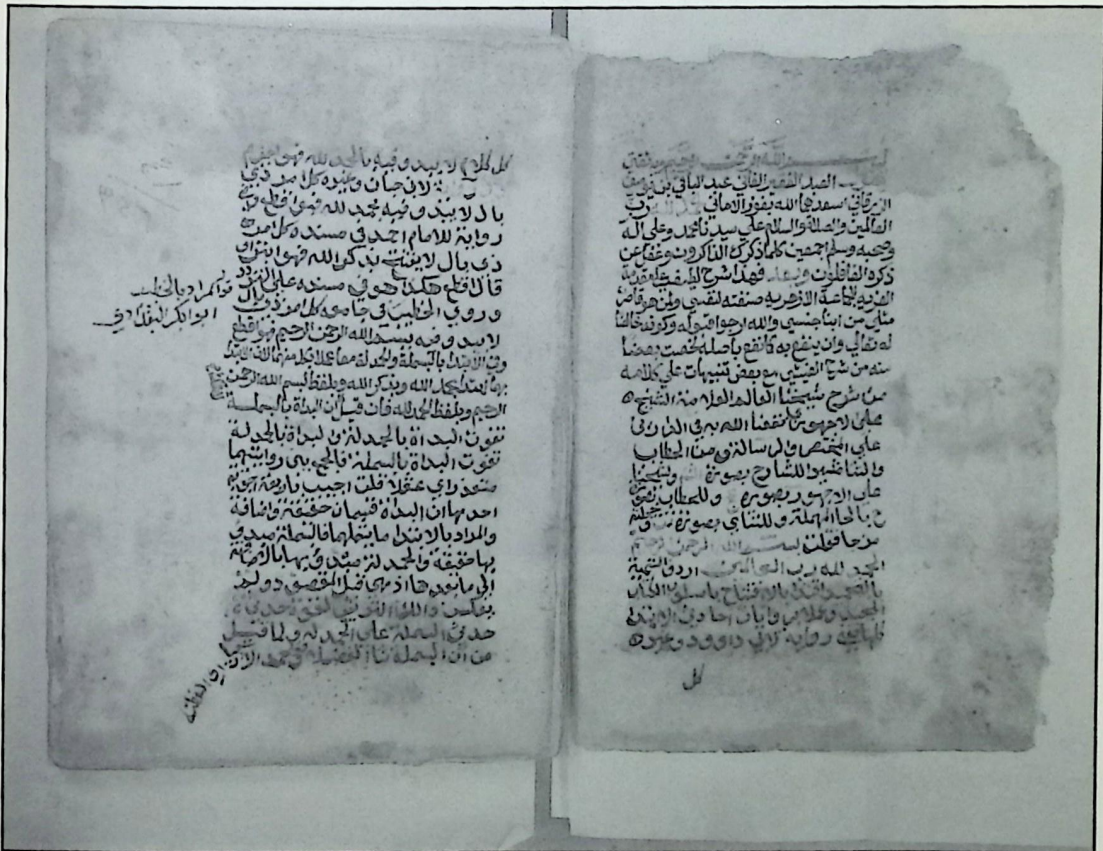 بسم الله الرحمن الرحيم وبه ثقتي
العبد الفقير الفاني عبد الباقي بن يوسف
الزرقاني اسعدهما الله بفوز الاماني رب
العالمين والصلاة والسلام على سيدنا محمد وعلى اله
وصحبه وسلم اجمعين كلما ذكرك الذاكرون وغفل عن
ذكره الغافلون وبعد فهذا شرح لطيف على مقدمة
العزيه للجماعة الازهريه صنفته لنفسي ولمن هو قاصر
مثلي من ابنا جنسي والله ارجوا قبوله وكونه خالصا
له تعالى وان ينفع به كما نفع باصله لخصت بعضا
منه من شرح الفيشي مع بعض تنبيهات على كلامه
من شرح شيخنا العالم العلامة الشيخ
على الاجهوري نفعنا الله به في الدارين
على المختصر والرسالة ومن الحطاب
والتتائي للشارح بصورة ولشيخنا
على الاجهوري بصورة وللحطاب بصورة
ح بالحا المهملة وللتتائي بصورة
بسم الله الرحمن الرحيم
الحمد لله رب العالمين اردف التسمية
بالتحميد اقتدا باسلوب الكتاب
المجيد وعملا بروايات احاديث الابتدا
ففي رواية لابي داوود وغيره
كل
كل كلام لا يبدو فيه بالحمد لله فهو اجذم
لابن حبان وغيره كل امر ذي
بال لا يبدو فيه بحمد لله فهو اقطع وفي
رواية للامام احمد في مسنده كل امر
ذي بال لا يفتتح بذكر الله فهو ابتر او
قال اقطع هكذا هو في مسنده على التردد
وروي الخطيب في جامعه كل امر ذي بال
لا يبدو فيه ببسم الله الرحمن الرحيم فهو اقطع
وفي الابتدا بالبسملة والحمدلة معا عملا بكل منها لان الابتدا
بحمد الله وبذكر الله وبلفظ بسم الله الرحمن
الرحيم وبلفظ الحمد لله فان قيل ان البداة بالبسملة
تفوت البداة بالحمدلة والبداة بالحمدلة
تفوت البداة بالبسملة فالجمع بين روايتهما
متعذر اي عقلا قلت اجيب باربعة اجوبة
احدها ان البداة قسمان حقيقة واضافة
والمراد بالابتدا ما يشملهما فالبسملة مبدو
بها حقيقة والحمدلة مبدو بها بالاضافة
الى ما بعدها اذ هي قبل المقصود ولم
يعكس
حديث البسملة على الحمدلة ولما قيل
من ان البسملة
قوله المراد بالخطيب
ابو ابكر البغدادي